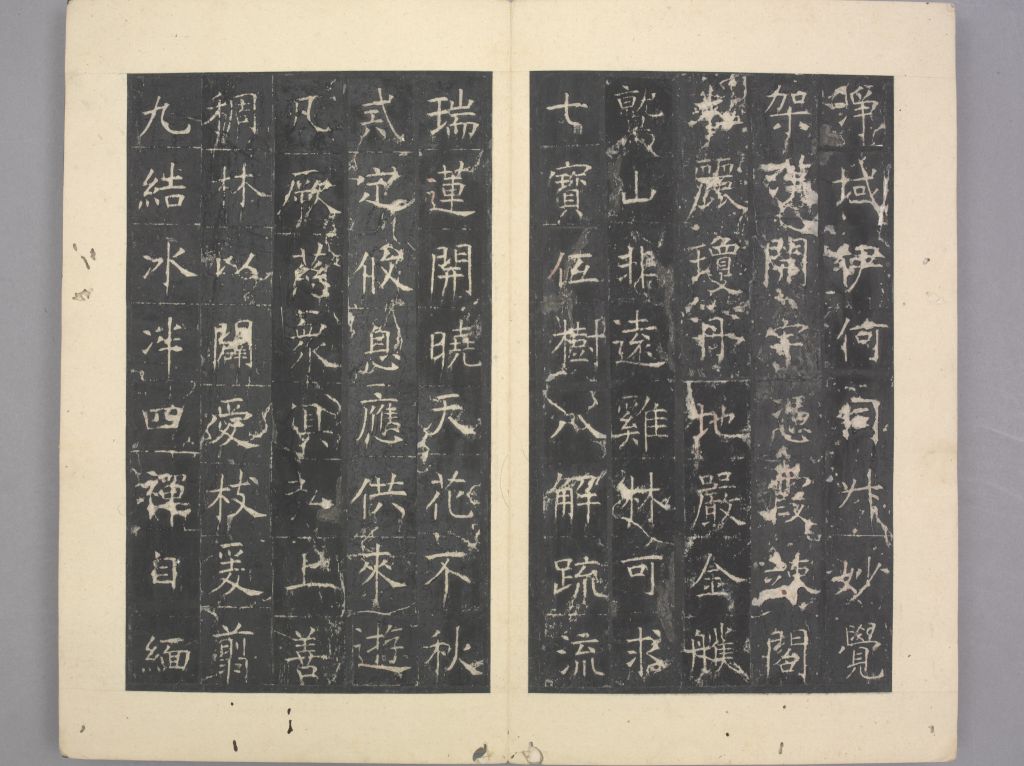 淨域伊何同升妙覺
架漢開宇憑霞竦閣
麗瓊丹地嚴金雘
鷲山非遠雞林可求
七寶低樹八解疏流
瑞蓮開曉天花不秋
定倏息應供來遊
凡厥衆俱弘上善
稠林以闢愛枝爰翦
九結冰泮四禪自緬